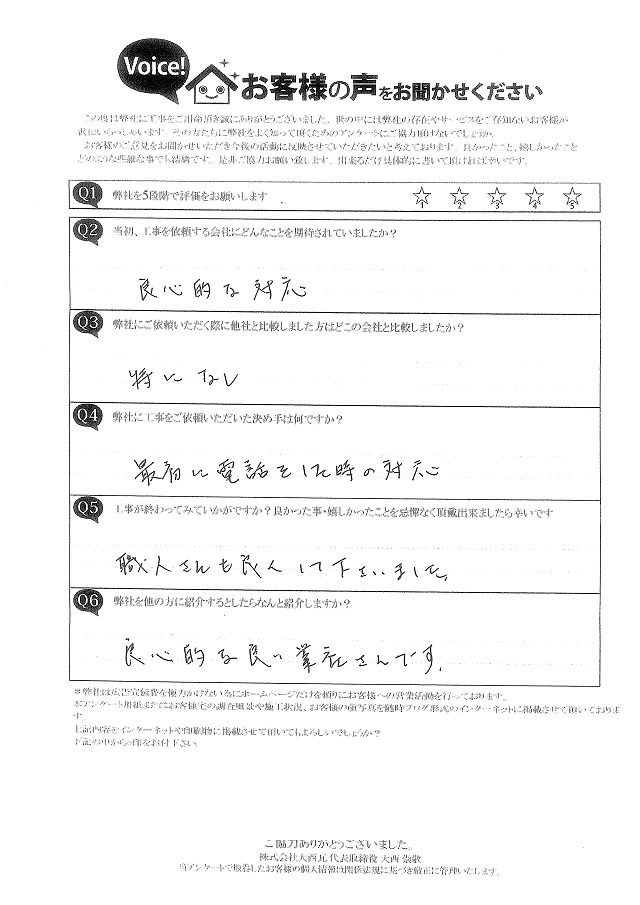 Voice!
お客様の声をお聞かせください
この度は弊社に工事をご用命頂き誠にありがとうございました。世の中には弊社の存在やサービスをご存知ないお客様が
沢山いらっしゃいます。その方たちに弊社をよく知って頂くためのアンケートにご協力頂けないでしょうか。
お客様のご意見をお聞かせいただき今後の活動に反映させていただきたいと考えております。良かったこと、嬉しかったこと
どのような些細な事でも結構です。是非ご協力お願い致します。出来るだけ具体的に書いて頂ければ幸いです。
Q1 弊社を5段階で評価をお願いします 1 2 3 4 5
Q2 当初、工事を依頼する会社にどんなことを期待されていましたか？
良心的な対応
Q3 弊社にご依頼いただく際に他社と比較しました方はどこの会社と比較しましたか？
特になし
Q4 弊社に工事をご依頼いただいた決め手は何ですか？
最初に電話をした時の対応
Q5 工事が終わってみていかがですか？良かった事・嬉しかったことを忌憚なく頂戴出来ましたら幸いです
職人さんも良くして下さいました。
Q6 弊社を他の方に紹介するとしたらなんと紹介しますか？
良心的な良い業社さんです。
＊弊社は広告宣伝費を極力かけない為にホームページだけを頼りにお客様への営業活動を行っております。
本アンケート用紙またはお客様宅の調査風景や施工状況、お客様の顔写真を随時ブログ形式のインターネットに掲載させて頂いております
す。
上記内容をインターネットや印刷物に掲載させて頂いてもよろしいでしょうか？
下記の中から○印をお付下さい。
ご協力ありがとうございました。
株式会社大西瓦 代表取締役 大西 崇敬
当アンケートで取得したお客様の個人情報は関係法規に基づき厳正に管理いたします。